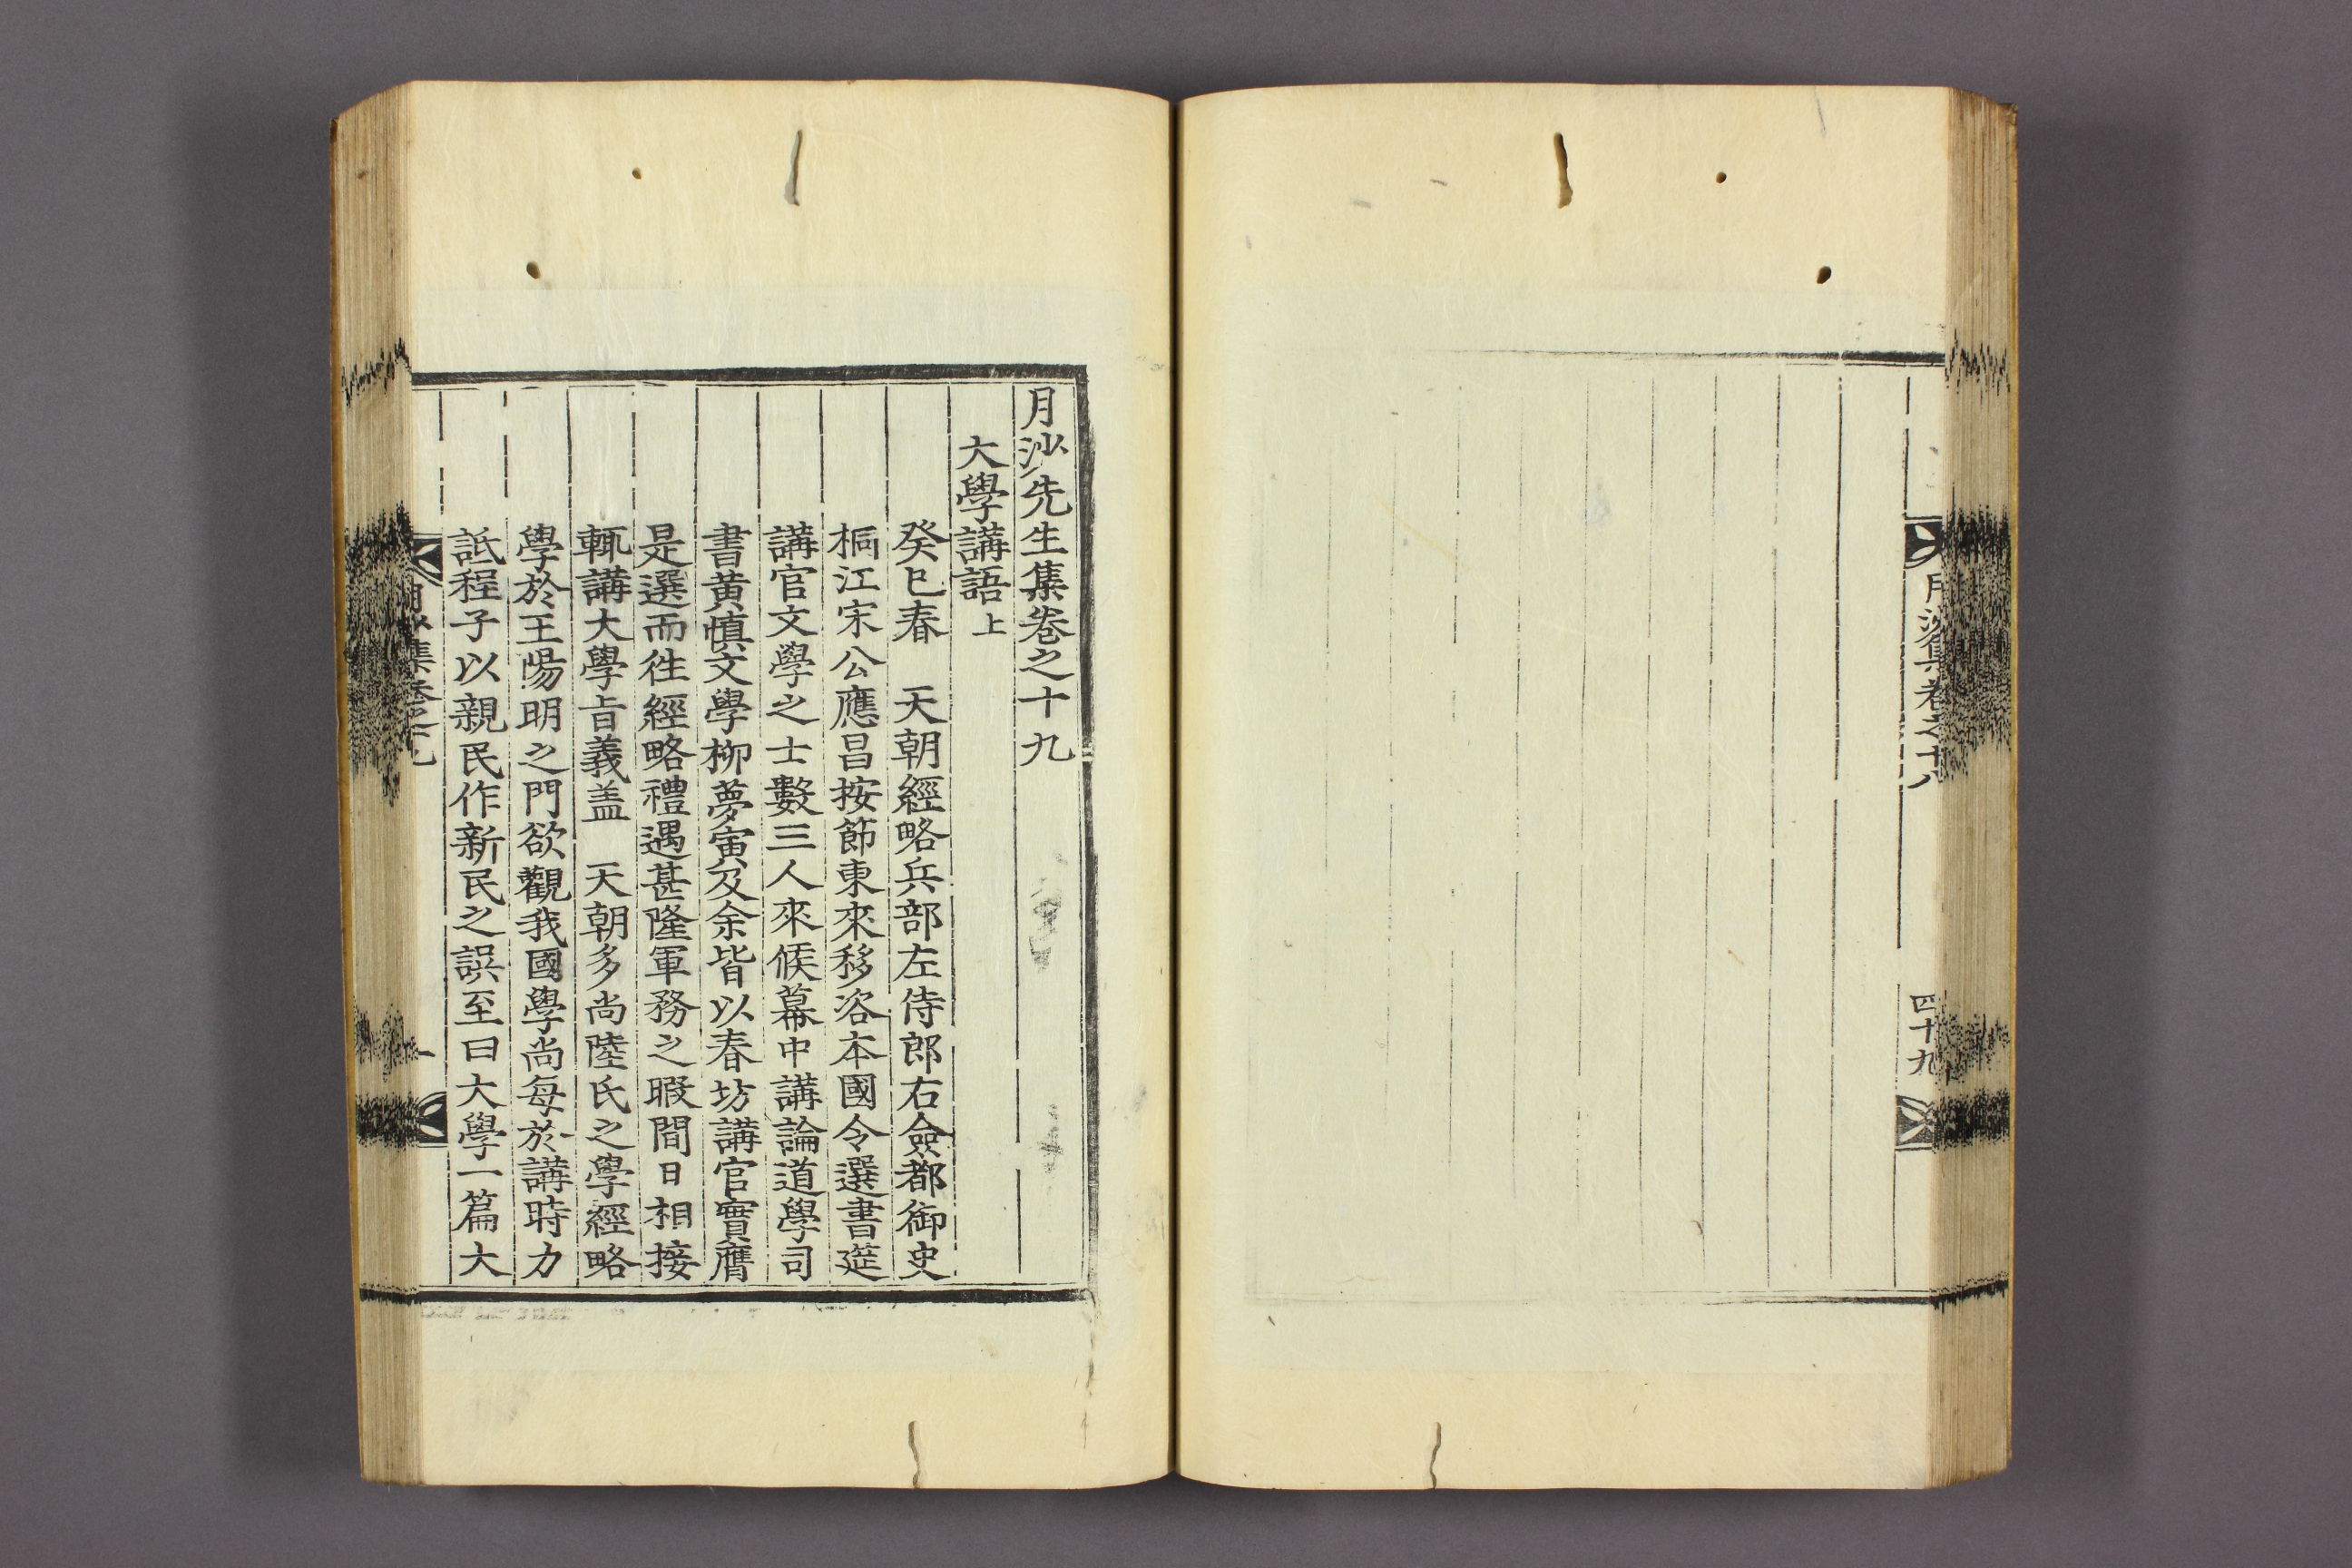 月沙集卷之十八
四十九
月沙先生集卷之十九
大學講語 上
癸巳春 天朝經略兵部左侍郎右僉都御史
桐江宋公應昌按節東來移咨本國令選書筵
講官文學之士數三人來候幕中講論道學司
書黃愼文學柳夢寅及余皆以春坊講官實膺
是選而徃經略禮遇甚隆軍務之暇間日相接
輒講大學旨義盖 天朝多尚陸氏之學經略
學於王陽明之門欲觀我國學尚每於講時力
詆程子以親民作新民之誤至曰大學一篇大
月沙集卷之十九
一